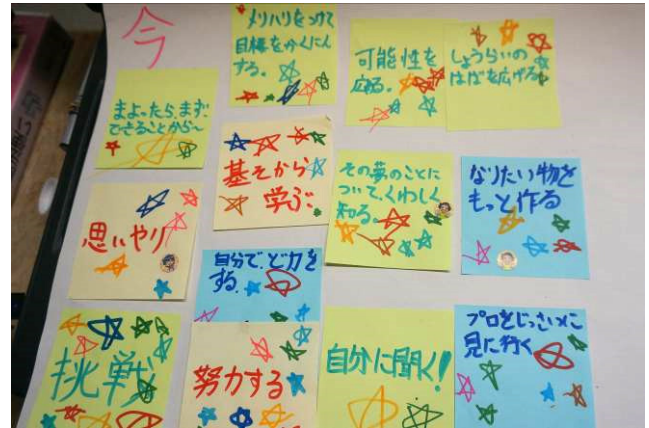 今
メリハリをつけて
目標をかくにん
する。
可能性を
広る。
しょうらいの
はばを広げる
まよったら、まず、
できることから〜
基そから
学ぶ
その夢のことに
ついて、くわしく
知る。
なりたい物を
もっと作る
思いやり
自分で、ど力を
する。
挑戦
努力する
自分に聞く!
プロをじっさいに
見に行く